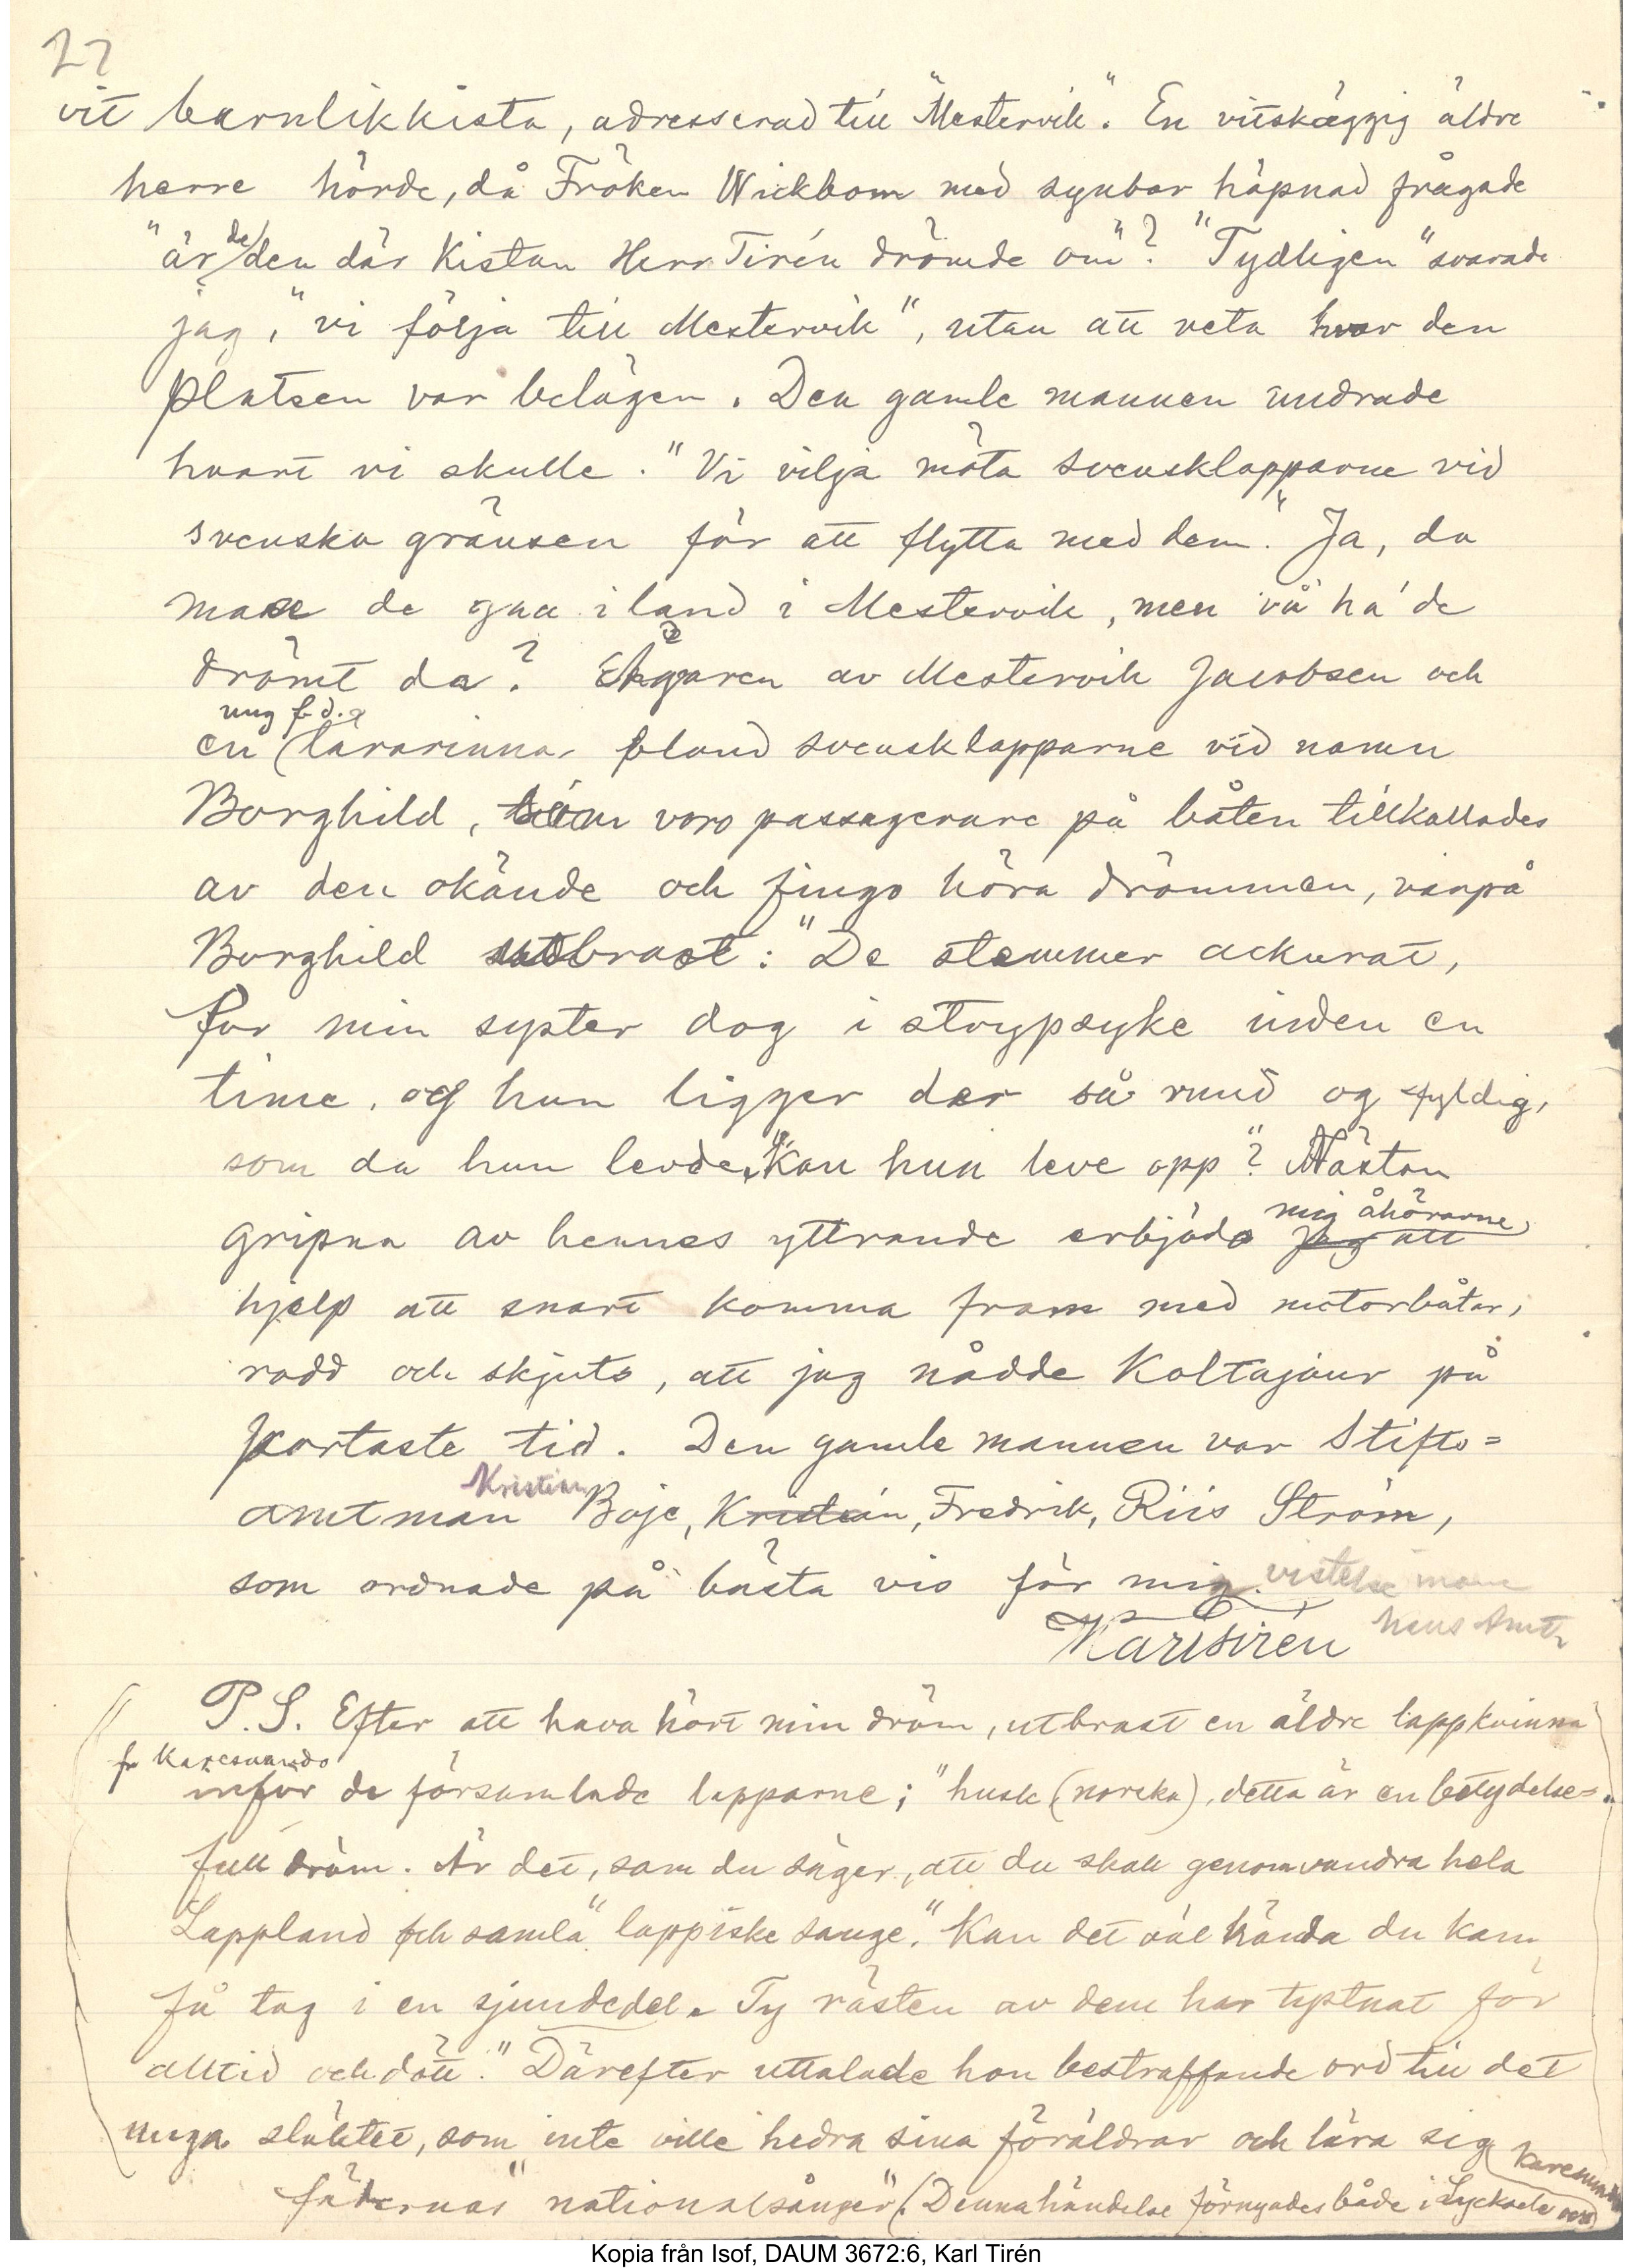 27
vit barnlikkista, adresserad till "Mestervik". En vitskäggig äldre
herre hörde, då Fröken Wickbom med synbar häpnad frågade
"är de den där Kistan Herr Tirén drömde om"? "Tydligen" svarade
jag, "vi följa till Mestervik", utan att veta hvar den
platsen var belägen. Den gamle mannen undrade
hvart vi skulle. "Vi vilja möta svensklapparne vid
svenska gränsen för att flytta med dem." Ja, da
maae de gaa i land i Mestervik, men vå ha' de
drömt da? Ägaren av Mestervik Jacobsen och
ung f.d.
en lärarinna bland svensklapparne vid namn
Borghild, som voro passagerare på båten tillkallades
av den okände och fingo höra drömmen, varpå
Borghild utbrast: "De stemmer ackurat,
for min syster dog i strypsyke inden en
time, og hun ligger der så rund og fyldig,
som da hun levde. "Kan hun leve opp"? Nästan
mig åhörarne
gripna av hennes yttrande erbjödo jag att
hjelp att snart komma fram med motorbåtar,
rodd och skjuts, att jag nådde Koltajaur på
kortaste tid. Den gamle mannen var Stifts=
Kristian
amtman Boje, Kristian, Fredrik, Riis Ström,
som ordnade på bästa vis för mig. vistelse inom
Karl Tirén hans Amt
P.S. Efter att hava hört min dröm, utbrast en äldre lappkvinna
fr Karesuando
inför de församlade lapparne; "husk (norska), detta är en betydelse=
full dröm. Är det, som du säger, att du skall genomvandra hela
Lappland och samla "lappiske sange." Kan det väl hända du kan
få tag i en sjundedel. Ty rästen av dem har tystnat för
alltid och dött." Därefter uttalade hon bestraffande ord till det
unga släktet, som inte ville hedra sina föräldrar och lära sig
fädernas "nationalsånger" (Denna händelse förnyades både i Lycksele och
Karesuando
Kopia från Isof, DAUM 3672:6, Karl Tirén